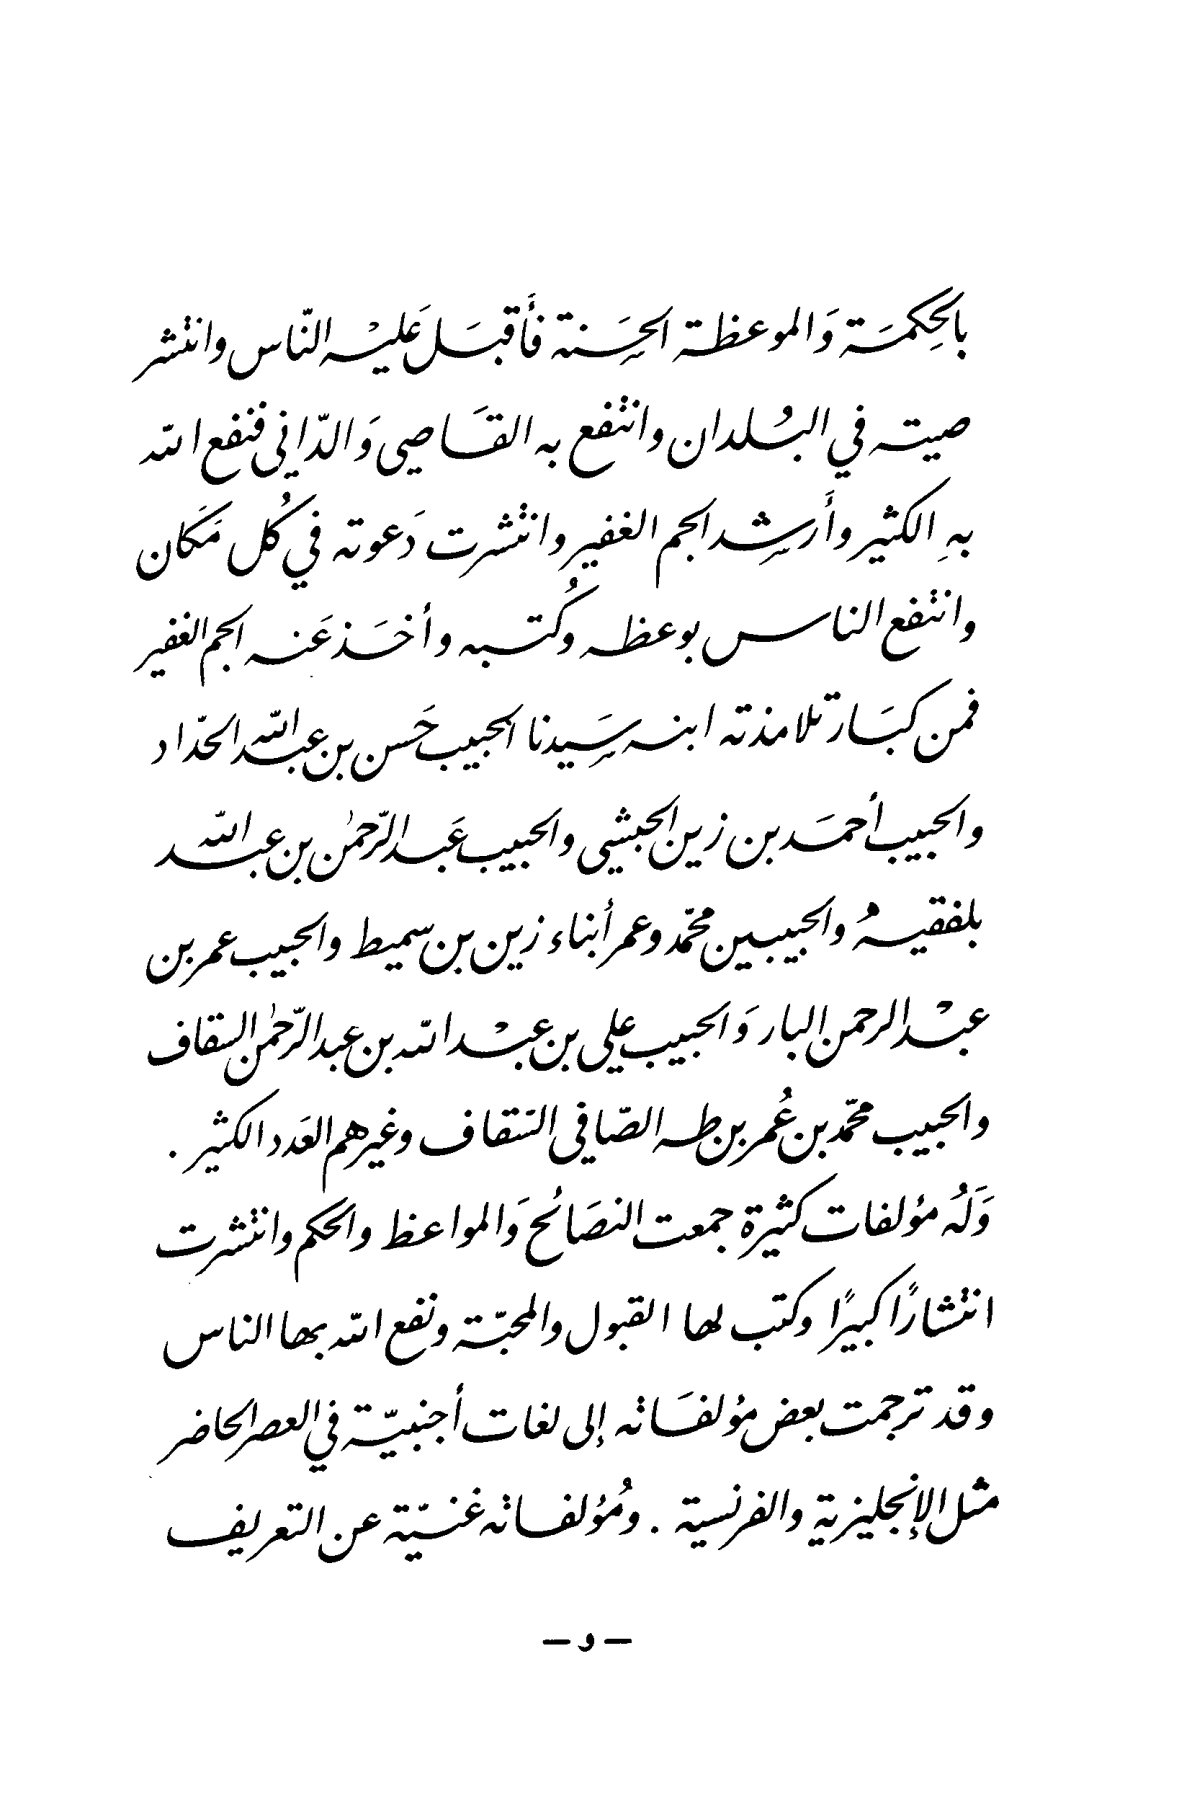 بالحِكمَة وَالموعظة الحَسِنة فأَقبَل عَليْه النّاس وانتشر
صيته في البُلدان وانتفع به القَاصي وَالدّاني فنفع الله
بهِ الكثير وأَرشِد الجم الغفير وانتشرت دَعوته في كُل مَكَان
وانتفع الناس بوعظه وكُتبه وأخَذ عَنه الجم الغفير
فمن كبَار تلامذته ابنه سَيِدنا الحبيب حَسن بن عبد الله الحدّاد
والحبيب أحمَد بن زين الحبشي والحبيب عَبد الرّحمٰن بن عبد الله
بلفقيهُ والحبيبين محمّد وعمر أبناء زين بن سميط والحبيب عمر بن
عبْد الرحمن البار وَالحبيب علي بن عبْد الله بن عبد الرّحمٰن السقاف
والحبيب محمّد بن عُمر بن طه الصّافي السّقاف وغيرهم العَدد الكثير .
وَلَهُ مؤلفات كثيرة جمعت النصَائح وَالمواعظ والحكم وانتشرت
انتشارًا كبيرًا وكتب لها القبول والمحبّة ونفع الله بها الناس
وقد ترجمت بعض مؤلفَاته إلى لغات أجنبيّة في العصر الحاضر
مثل الإنجليزية والفرنسية . ومُؤلفاته غنسيّة عن التعريف
— و —